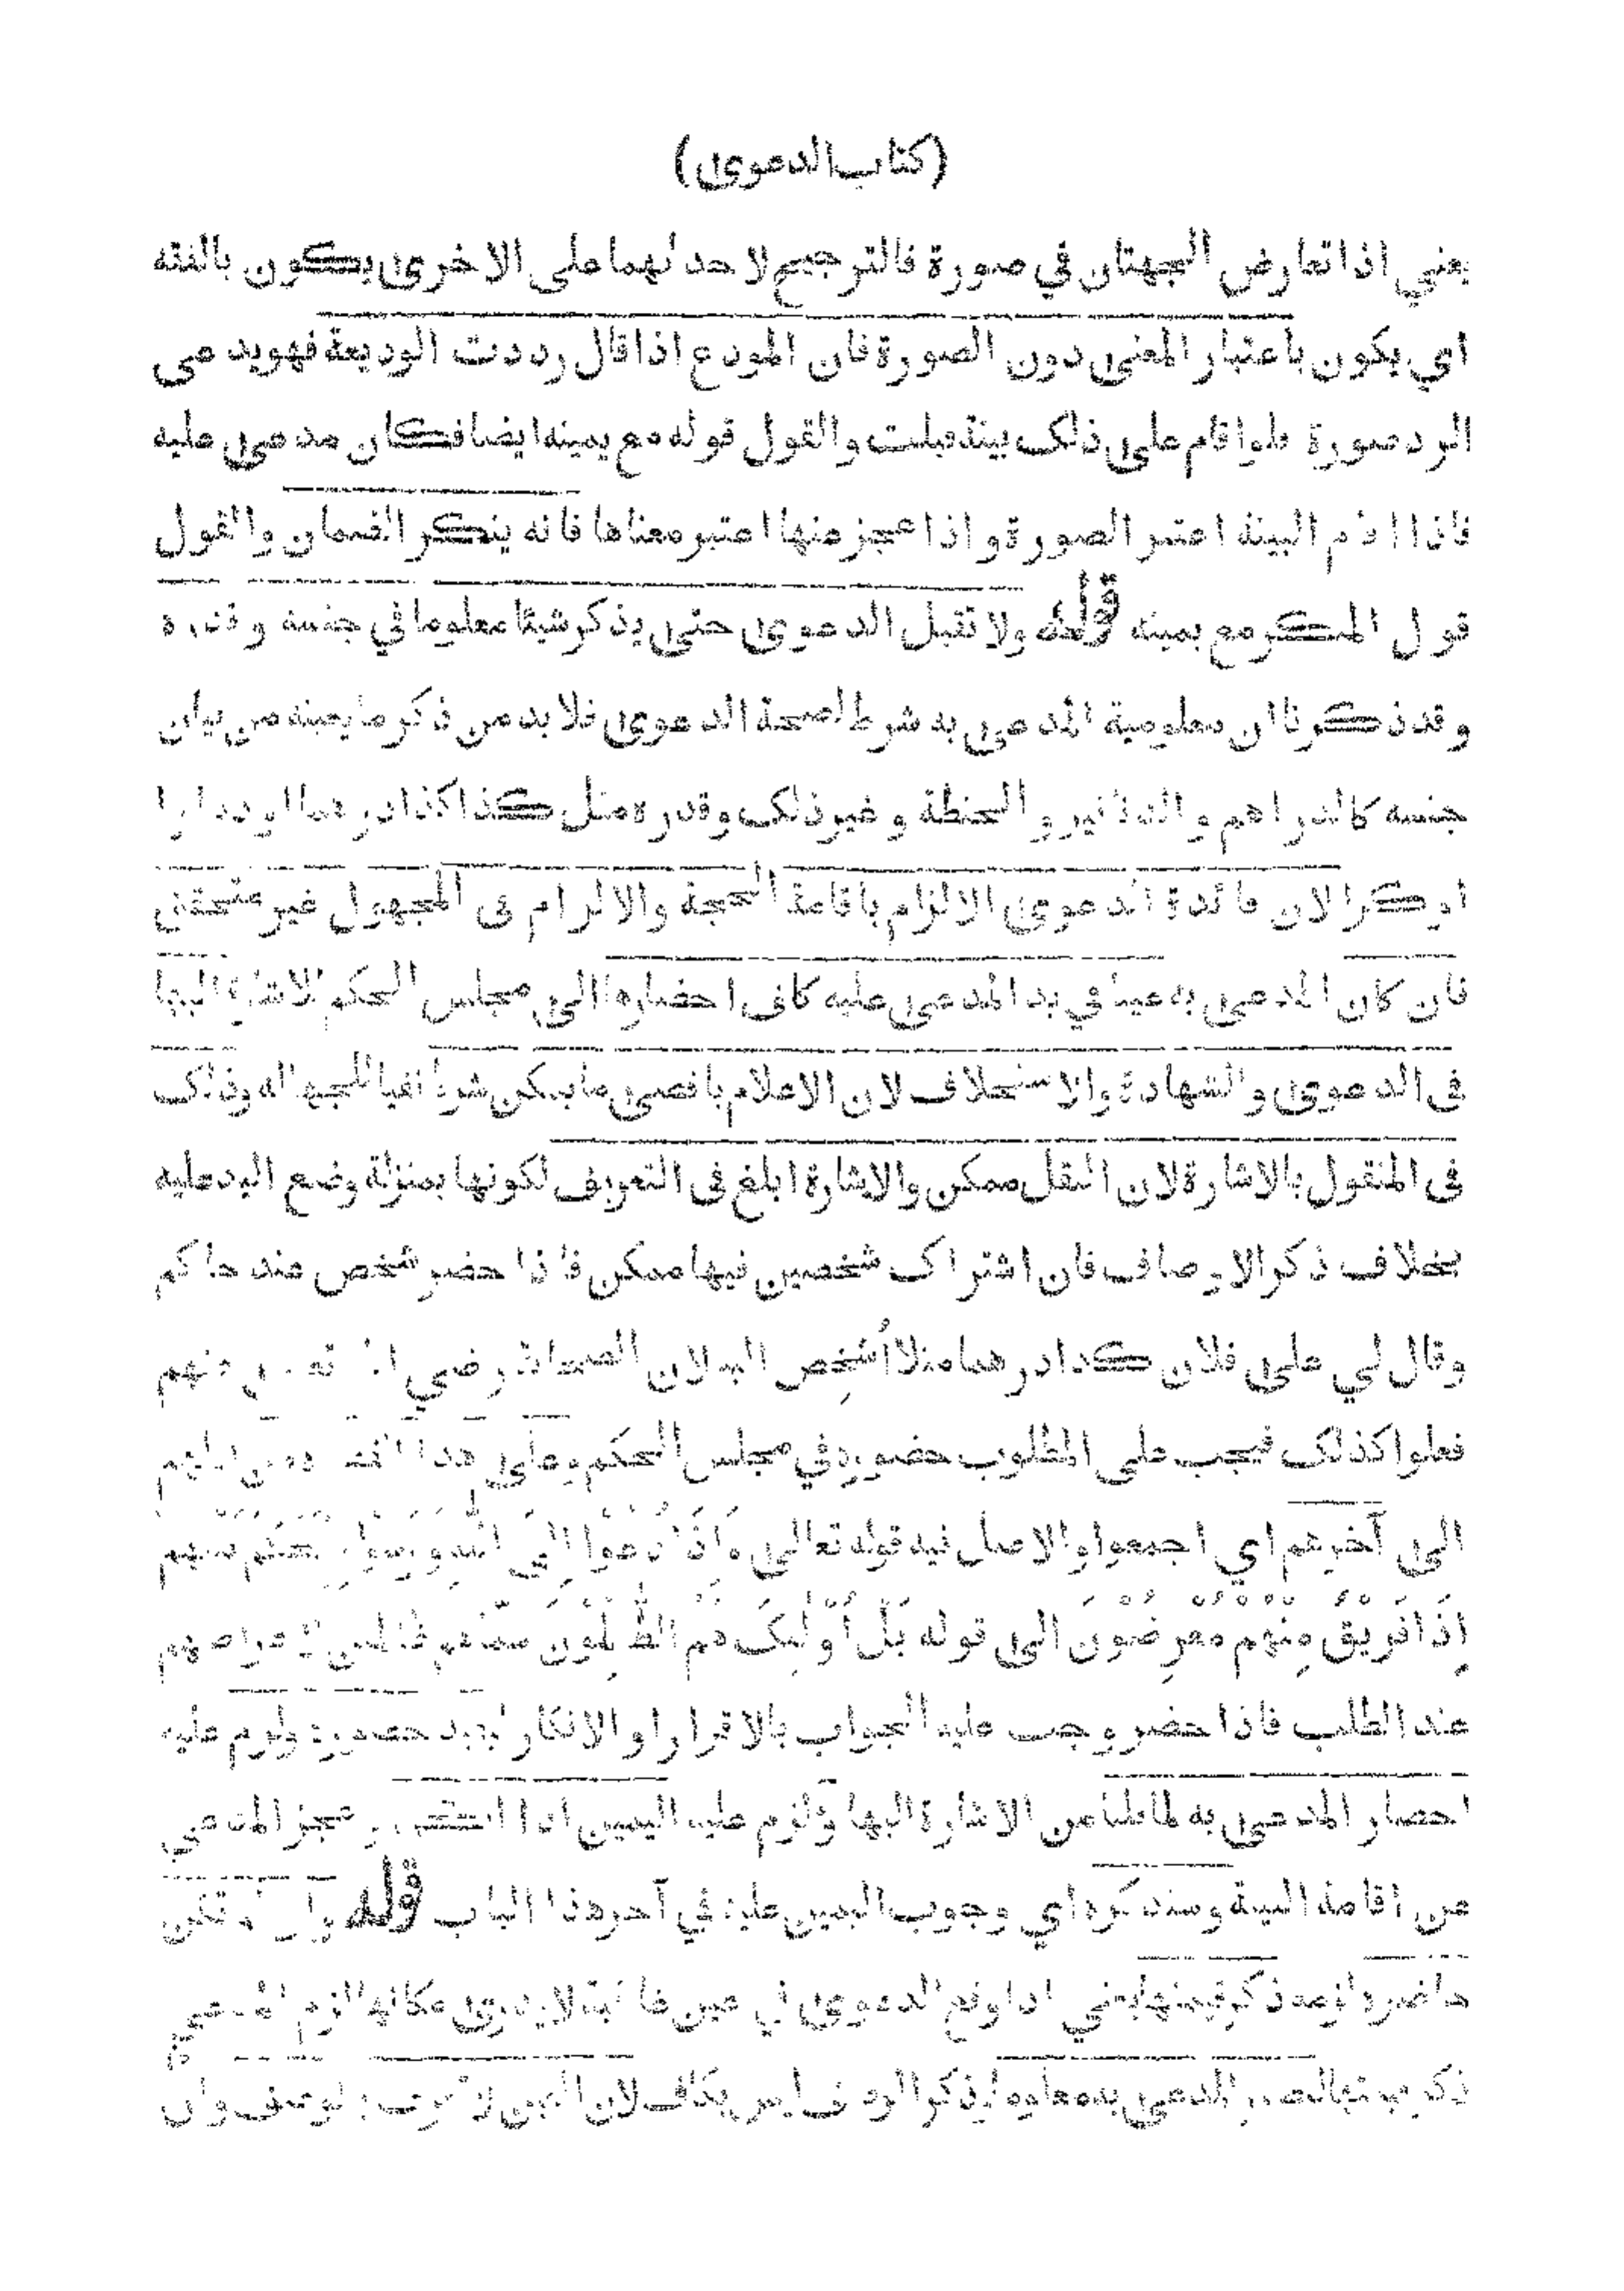 (كتاب الدعوى)
يعني اذا تعارض الجهتان في صورة فالترجيح لاحدلهما على الاخرى يكون بالفقه
اي يكون باعتبار المعنى دون الصورة فان المودع اذا قال رددت الوديعة فهو يدعى
الرد صورة فلو اقام على ذلك بينة قبلت والقول قوله مع يمينه ايضا فكان مدعى عليه
فاذا اقام البينة اعتبر الصورة و اذا عجز عنها اعتبر معناها فانه ينكر الضمان والقول
قول المنكر مع يمينه قوله ولا تقبل الدعوى حتى يذكر شيئا معلوما في جنسه و قدره
وقد ذكرنا ان معلومية المدعى به شرط لصحة الدعوى فلا بد من ذكر ما يعينه من بيان
جنسه كالدراهم والدنانير والحنطة وغير ذلك وقدره مثل كذا كذا درهما او دينارا
او كرا لان فائدة الدعوى الالزام باقامة الحجة والالزام فى المجهول غير متحقق
فان كان المدعى به عينا في يد المدعى عليه كلف احضارها الى مجلس الحكم للاشارة اليها
فى الدعوى والشهادة والاستحلاف لان الاعلام باقصى ما يمكن شرط نفيا للجهالة وذلك
فى المنقول بالاشارة لان النقل ممكن والاشارة ابلغ فى التعريف لكونها بمنزلة وضع اليد عليه
بخلاف ذكر الاوصاف فان اشتراك شخصين فيها ممكن فاذا حضر شخص عند حاكم
وقال لي على فلان كذا درهما مثلا أشخِص اليه لان الصحابة رضي الله تعالى عنهم
فعلوا كذلك فيجب على المطلوب حضوره في مجلس الحكم وعلى هذا القضاة من اولهم
الى آخرهم اي اجمعوا والاصل فيه قوله تعالى وَاِذَا دُعُوْا اِلَى اللّٰهِ وَرَسُوْلِهِ لِيَحْكُمَ بَيْنَهُمْ
اِذَا فَرِيْقٌ مِنْهُمْ مُعْرِضُوْنَ الى قوله بَلْ اُوْلٰئِكَ هُمُ الظّٰلِمُوْنَ سماهم ظالمين لاعراضهم
عند الطلب فاذا حضر وجب عليه الجواب بالاقرار او الانكار ليفيد حضوره ولزم عليه
احضار المدعى به لما قلنا من الاشارة اليها ولزم عليه اليمين اذا انكر وعجز المدعي
من اقامة البينة وسنذكره اي وجوب اليمين عليه في آخر هذا الباب قوله وان لم تكن
حاضرة ذكر قيمتها يعني اذا وقع الدعوى في عين غائبة لا يدرى مكانها لزم المدعي
ذكر قيمتها ليصير المدعى به معلوما ذكر الوصف ليس بكاف لان العين لا تعرف بالوصف وان